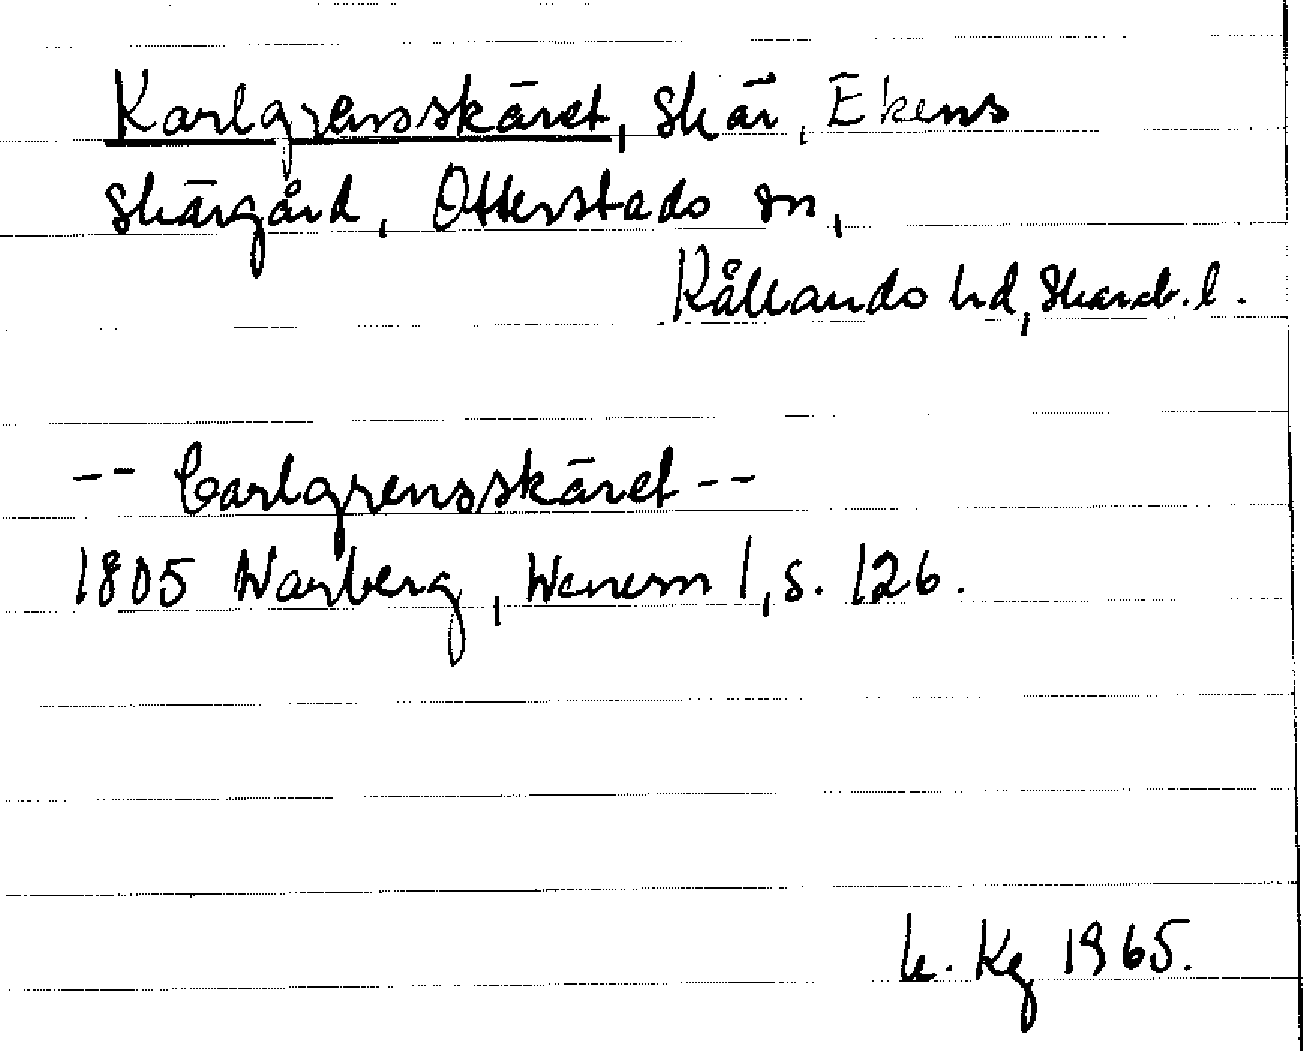 Karlgrensskäret, skär, Ekens
skärgård, Otterstads sn,
Kållands hd, Skarab. l.
-- Carlgrensskäret --
1805 Warberg, Wenern 1, s. 126.
Kg 1965.